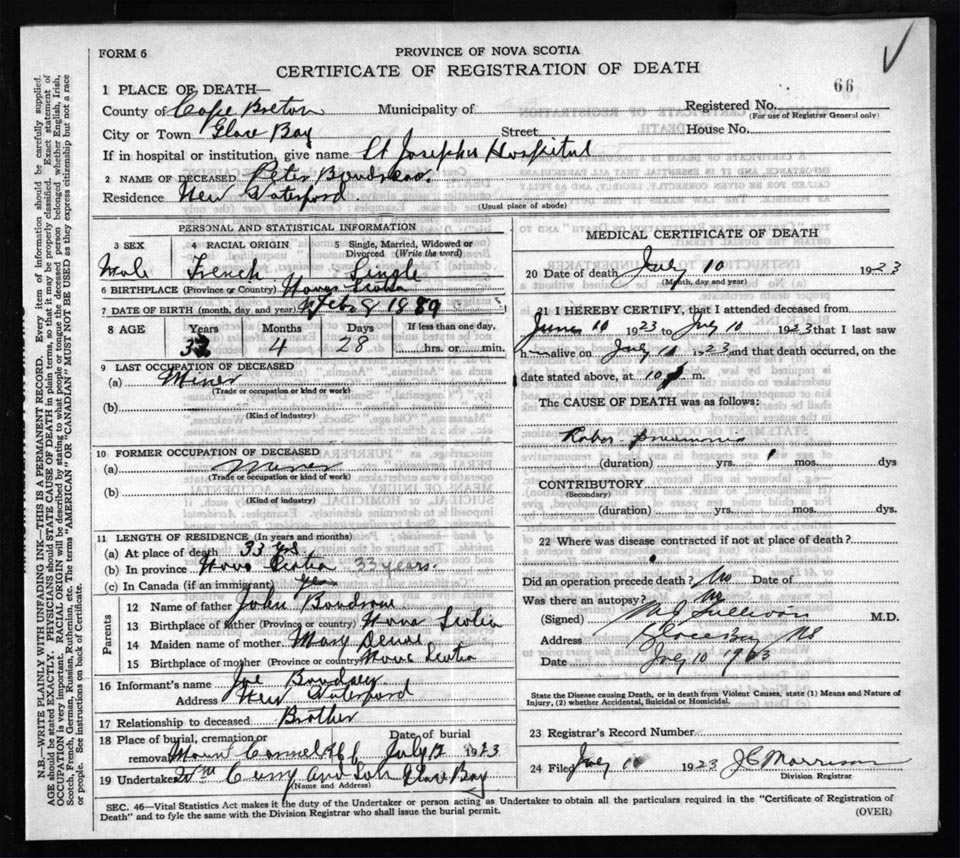 FORM 6
PROVINCE OF NOVA SCOTIA
CERTIFICATE OF REGISTRATION OF DEATH
66
1 PLACE OF DEATH—
Registered No.
(For use of Registrar General only)
County of Cape Breton Municipality of
City or Town Glace Bay Street House No.
If in hospital or institution, give name St Josephs Hospital
2 NAME OF DECEASED Peter
Residence New Waterford
(Usual place of abode)
PERSONAL AND STATISTICAL INFORMATION
3 SEX 4 RACIAL ORIGIN 5 Single, Married, Widowed or Divorced (Write the word)
Male French Single
6 BIRTHPLACE (Province or Country) Nova Scotia
7 DATE OF BIRTH (month, day and year) Feb 8 1889
8 AGE Years Months Days If less than one day,
4 28 hrs. or min.
9 LAST OCCUPATION OF DECEASED
(a) Miner
(Trade or occupation or kind of work)
(b)
(Kind of industry)
10 FORMER OCCUPATION OF DECEASED
(a) Miner
(Trade or occupation or kind of work)
(b)
(Kind of industry)
11 LENGTH OF RESIDENCE (In years and months)
(a) At place of death 33 yrs
(b) In province Nova Scotia 33 years.
(c) In Canada (if an immigrant) yes
Parents
12 Name of father John
13 Birthplace of father (Province or country) Nova Scotia
14 Maiden name of mother Mary
15 Birthplace of mother (Province or country) Nova Scotia
16 Informant's name Joe
Address New Waterford
17 Relationship to deceased Brother
18 Place of burial, cremation or removal Date of burial
Mount Carmel July 12 1923
19 Undertaker Wm Curry and Son Glace Bay
(Name and Address)
MEDICAL CERTIFICATE OF DEATH
20 Date of death July 10 1923
(Month, day and year)
21 I HEREBY CERTIFY, that I attended deceased from
June 10 1923 to July 10 1923 that I last saw
him alive on July 10 1923 and that death occurred, on the
date stated above, at 10 m.
The CAUSE OF DEATH was as follows:
pneumonia
(duration) yrs. 1 mos. dys
CONTRIBUTORY
(Secondary)
(duration) yrs. mos. dys.
22 Where was disease contracted if not at place of death?
Did an operation precede death? No Date of
Was there an autopsy? No
(Signed) M J Sullivan M.D.
Address Glace Bay NS
Date July 10 1923
State the Disease causing Death, or in death from Violent Causes, state (1) Means and Nature of
Injury, (2) whether Accidental, Suicidal or Homicidal.
23 Registrar's Record Number
24 Filed July 1923 J C Morrison
Division Registrar
SEC. 46—Vital Statistics Act makes it the duty of the Undertaker or person acting as Undertaker to obtain all the particulars required in the "Certificate of Registration of
Death" and to fyle the same with the Division Registrar who shall issue the burial permit.
(OVER)
N.B.—WRITE PLAINLY WITH UNFADING INK—THIS IS A PERMANENT RECORD. Every item of information should be carefully supplied.
AGE should be stated EXACTLY. PHYSICIANS should STATE CAUSE OF DEATH in plain terms, so that it may be properly classified. Exact statement of
OCCUPATION is very important. RACIAL ORIGIN will be described by stating to what people or race the deceased person belonged whether English, Irish,
Scotch, French, German, Russian, Ruthenian, etc. The terms "AMERICAN" OR "CANADIAN" MUST NOT BE USED as they express citizenship but not a race
or people. See instructions on back of Certificate.